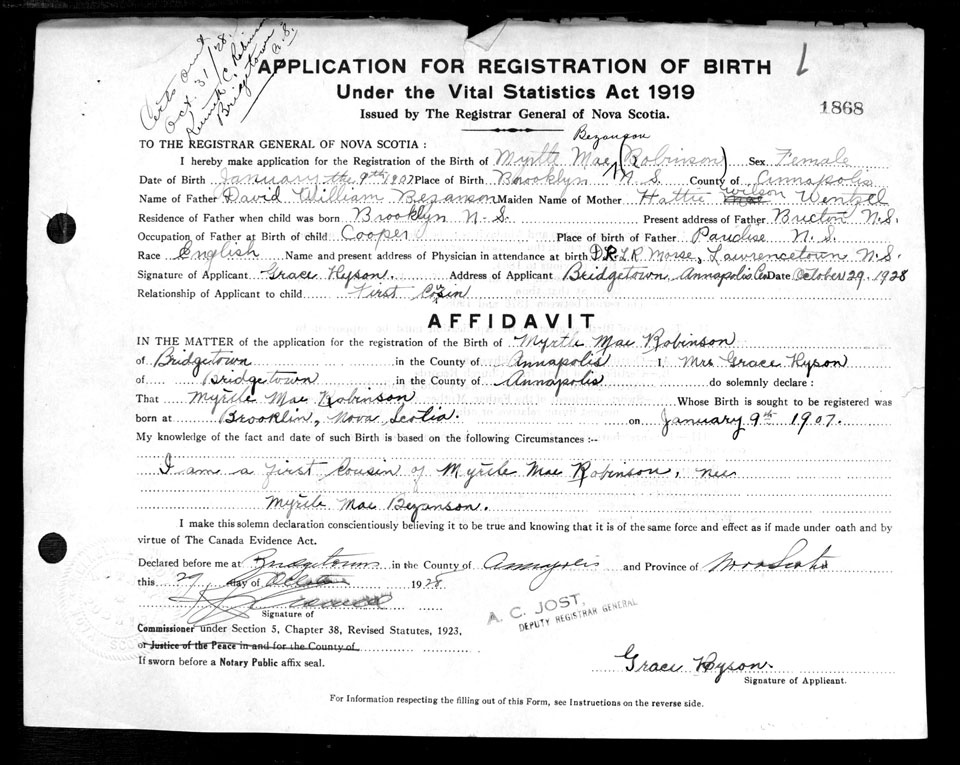 Certs out
Oct. 31/28.
Kenneth C. Robinson
Bridgetown
N.S.
APPLICATION FOR REGISTRATION OF BIRTH
Under the Vital Statistics Act 1919
Issued by The Registrar General of Nova Scotia.
1868
TO THE REGISTRAR GENERAL OF NOVA SCOTIA :
Bezanson
I hereby make application for the Registration of the Birth of Myrtle Mae (Robinson) Sex Female
Date of Birth January the 9th 1907 Place of Birth Brooklyn N S County of Annapolis
Name of Father David William Bezanson Maiden Name of Mother Hattie Wilson Wentzel
Residence of Father when child was born Brooklyn N-S. Present address of Father Bricton N.S.
Occupation of Father at Birth of child Cooper Place of birth of Father Paradise N. S.
Race English Name and present address of Physician in attendance at birth DR. L.R. Morse, Lawrencetown N.S.
Signature of Applicant Grace Hyson. Address of Applicant Bridgetown, Annapolis Co Date October 29. 1928
Relationship of Applicant to child First Cousin
AFFIDAVIT
IN THE MATTER of the application for the registration of the Birth of Myrtle Mae Robinson
of Bridgetown in the County of Annapolis I, Mrs Grace Hyson
of Bridgetown in the County of Annapolis do solemnly declare :
That Myrtle Mae Robinson Whose Birth is sought to be registered was
born at Brooklin, Nova Scotia. on January 9th 1907.
My knowledge of the fact and date of such Birth is based on the following Circumstances :--
I am a first cousin of Myrtle Mae Robinson, nee
Myrtle Mae Bezanson.
I make this solemn declaration conscientiously believing it to be true and knowing that it is of the same force and effect as if made under oath and by
virtue of The Canada Evidence Act.
Declared before me at Bridgetown in the County of Annapolis and Province of Nova Scotia
this 29 day of October 1928
Signature of
A. C. JOST,
DEPUTY REGISTRAR GENERAL
Commissioner under Section 5, Chapter 38, Revised Statutes, 1923,
or Justice of the Peace in and for the County of
If sworn before a Notary Public affix seal.
Grace Hyson.
Signature of Applicant.
For Information respecting the filling out of this Form, see Instructions on the reverse side.